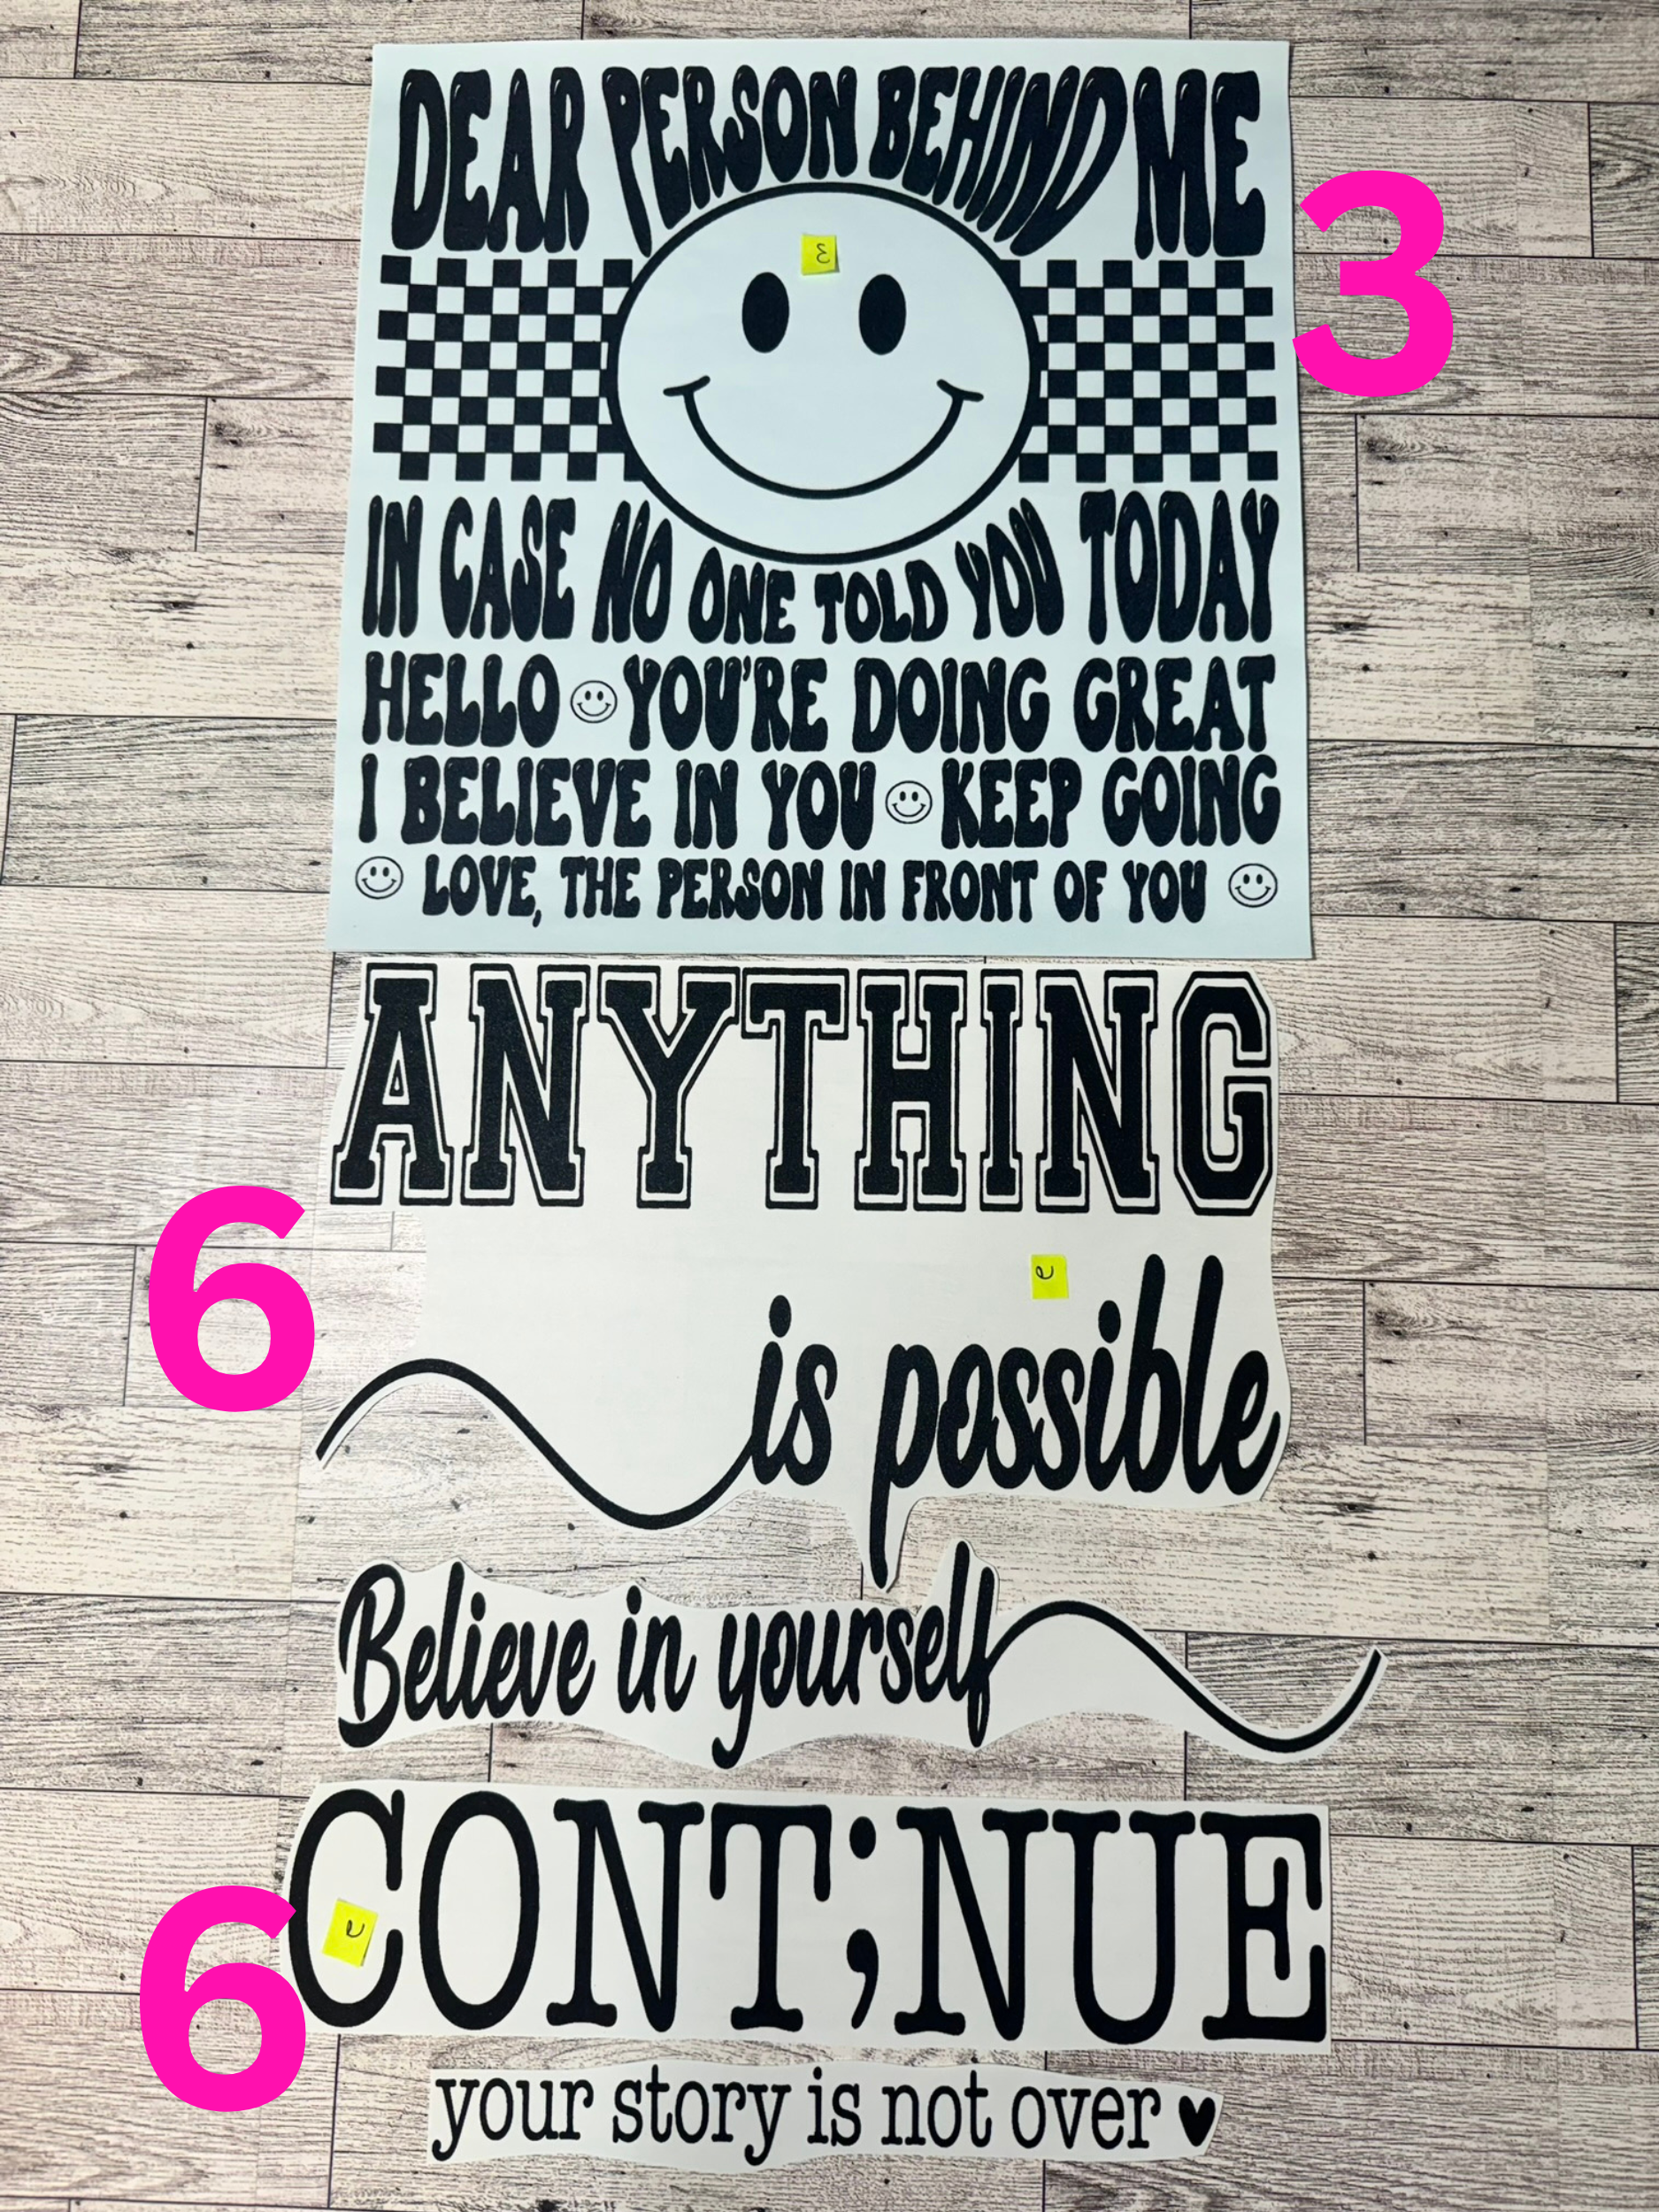 DEAR PERSON BEHIND ME
3
3
IN CASE NO ONE TOLD YOU TODAY
HELLO YOU'RE DOING GREAT
I BELIEVE IN YOU KEEP GOING
LOVE, THE PERSON IN FRONT OF YOU
ANYTHING
6
is possible
Believe in yourself
CONT;NUE
6
your story is not over